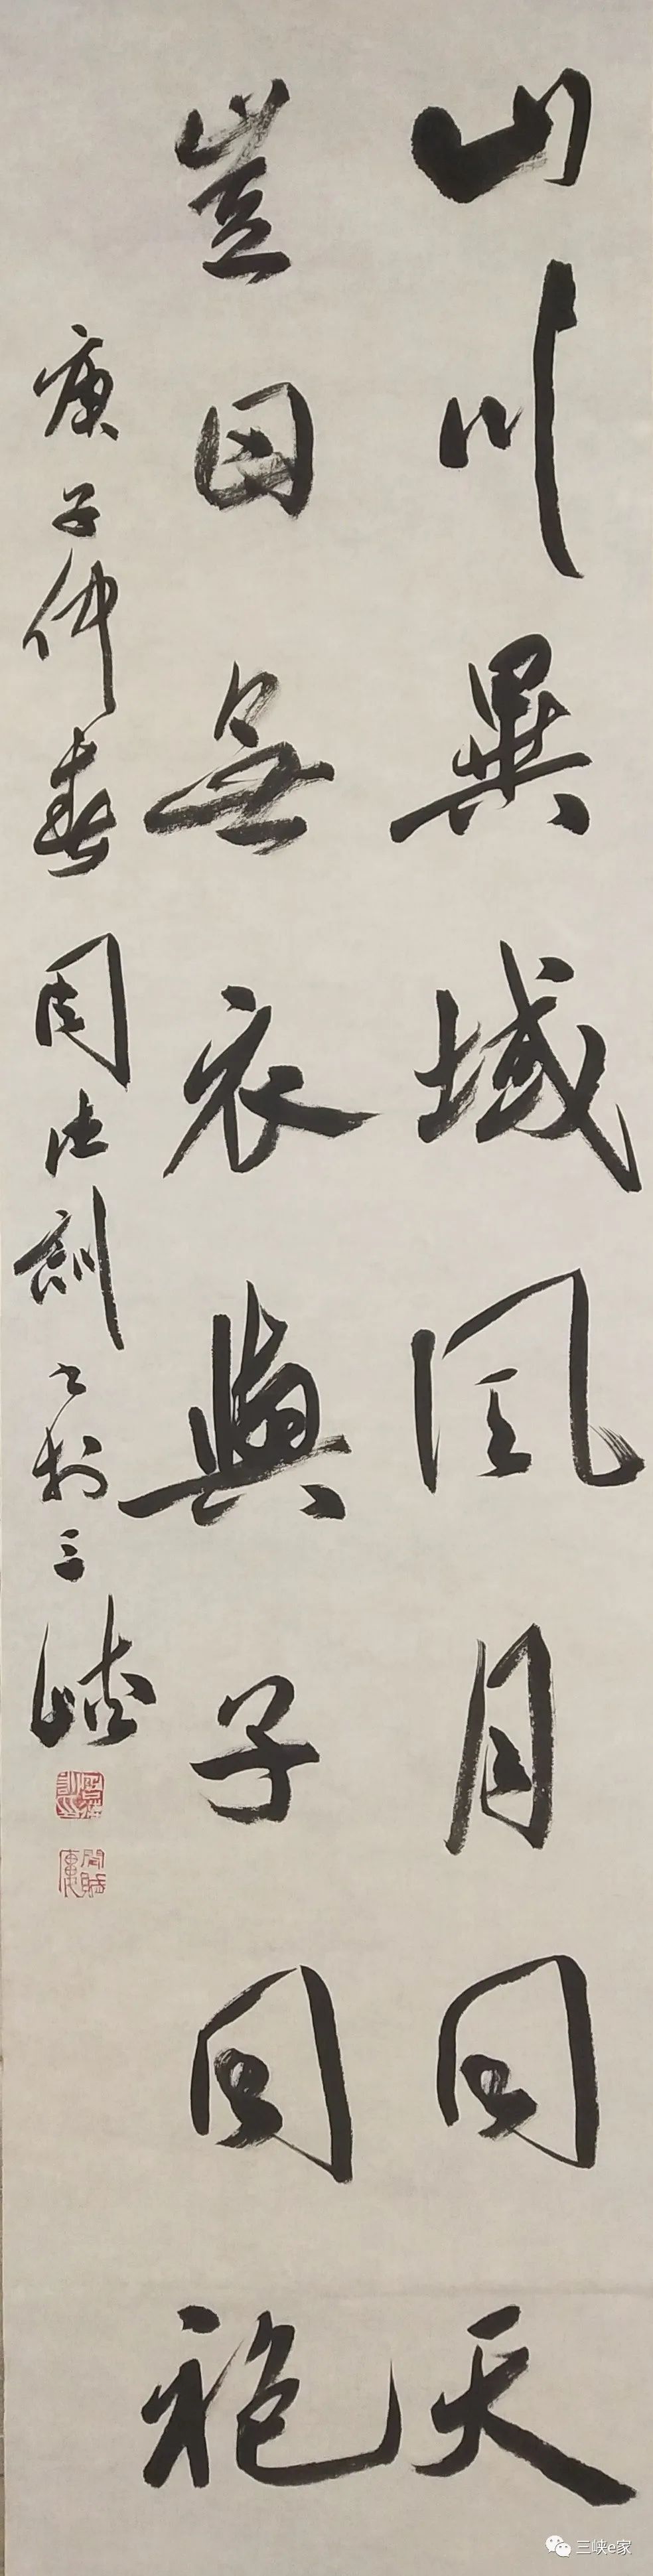 山川異域風月同天
豈曰無衣與子同袍
庚子仲春周訓於三峽
三峡e家